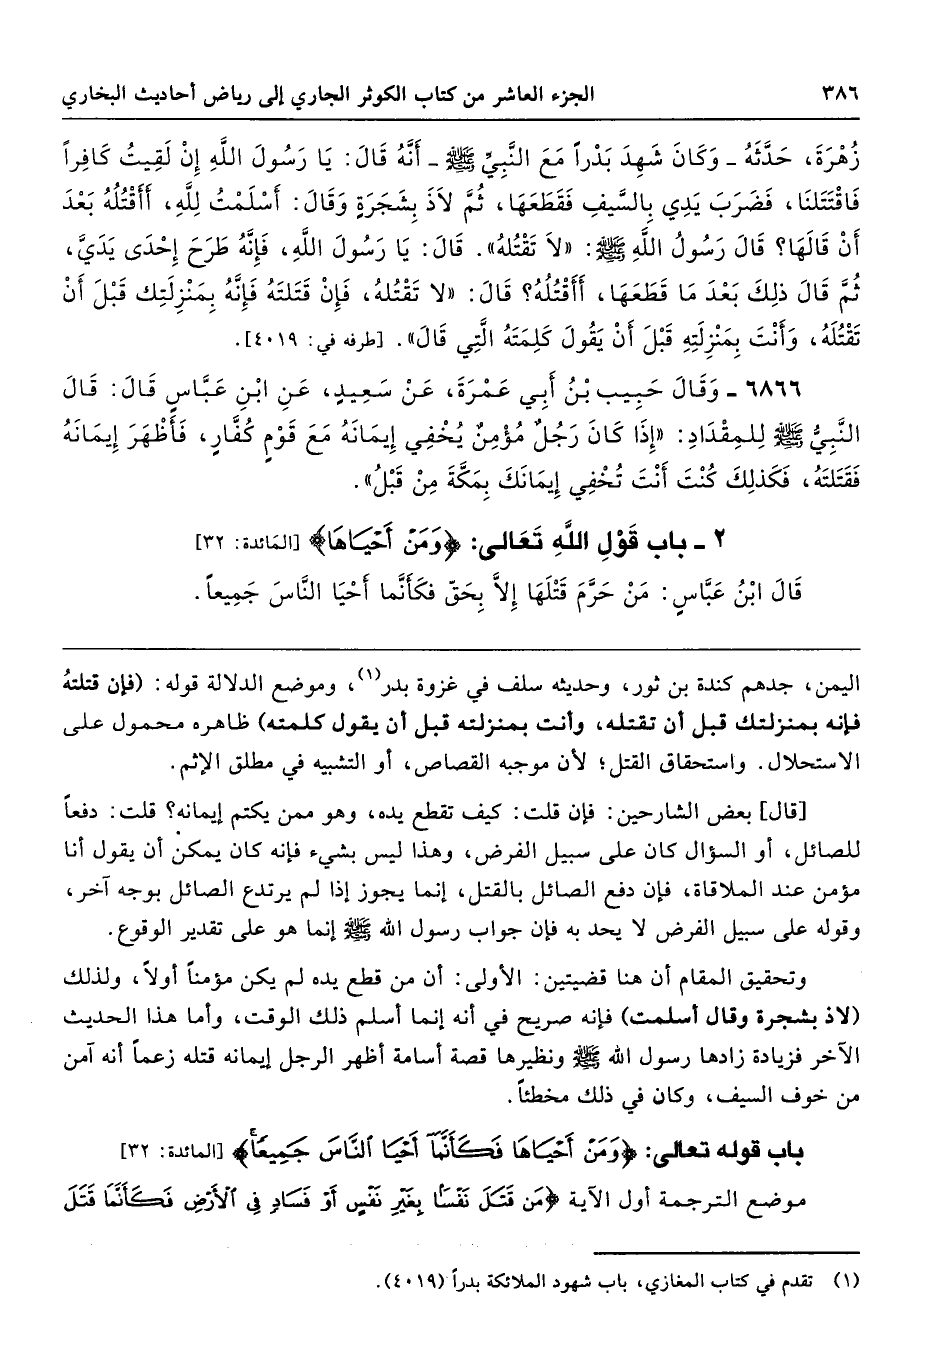 ٣٨٦ الجزء العاشر من كتاب الكوثر الجاري إلى رياض أحاديث البخاري
زُهْرَةَ، حَدَّثَهُ ـ وَكَانَ شَهِدَ بَدْراً مَعَ النَّبِيِّ ﷺ ـ أَنَّهُ قَالَ: يَا رَسُولَ اللَّهِ إِنْ لَقِيتُ كَافِراً
فَاقْتَتَلْنَا، فَضَرَبَ يَدِي بِالسَّيفِ فَقَطَعَهَا، ثُمَّ لاَذَ بِشَجَرَةٍ وَقَالَ: أَسْلَمْتُ لِلَّهِ، أَأَقْتُلُهُ بَعْدَ
أَنْ قَالَهَا؟ قَالَ رَسُولُ اللَّهِ ﷺ: «لاَ تَقْتُلهُ». قَالَ: يَا رَسُولَ اللَّهِ، فَإِنَّهُ طَرَحَ إِحْدَى يَدَيَّ،
ثُمَّ قَالَ ذلِكَ بَعْدَ مَا قَطَعَهَا، أَأَقْتُلُهُ؟ قَالَ: «لا تَقْتُلهُ، فَإِنْ قَتَلتَهُ فَإِنَّهُ بِمَنْزِلَتِك قَبْلَ أَنْ
تَقْتُلَهُ، وَأَنْتَ بِمَنْزِلَتِهِ قَبْلَ أَنْ يَقُولَ كَلِمَتَهُ الَّتِي قَالَ». [طرفه في: ٤٠١٩].
٦٨٦٦ ـ وَقَالَ حَبِيب بْنُ أَبِي عَمْرَةَ، عَنْ سَعِيدٍ، عَنِ ابْنِ عَبَّاسٍ قَالَ: قَالَ
النَّبِيُّ ﷺ لِلمِقْدَادِ: «إِذَا كَانَ رَجُلٌ مُؤْمِنٌ يُخْفِي إِيمَانَهُ مَعَ قَوْمٍ كُفَّارٍ، فَأَظْهَرَ إِيمَانَهُ
فَقَتَلتَهُ، فَكَذلِكَ كُنْتَ أَنْتَ تُخْفِي إِيمَانَكَ بِمَكَّةَ مِنْ قَبْلُ».
٢ ـ باب قَوْلِ اللَّهِ تَعَالى: ﴿وَمَنْ أَحْيَاهَا﴾ [المَائدة: ٣٢]
قَالَ ابْنُ عَبَّاسٍ: مَنْ حَرَّمَ قَتْلَهَا إِلاَّ بِحَقّ فكَأَنَّما أَحْيَا النَّاسَ جَمِيعاً.
اليمن، جدهم كندة بن ثور، وحديثه سلف في غزوة بدر(١)، وموضع الدلالة قوله: (فإن قتلتهُ
فإنه بمنزلتك قبل أن تقتله، وأنت بمنزلته قبل أن يقول كلمته) ظاهره محمول على
الاستحلال. واستحقاق القتل؛ لأن موجبه القصاص، أو التشبيه في مطلق الإثم.
[قال] بعض الشارحين: فإن قلت: كيف تقطع يده، وهو ممن يكتم إيمانه؟ قلت: دفعاً
للصائل، أو السؤال كان على سبيل الفرض، وهذا ليس بشيء فإنه كان يمكن أن يقول أنا
مؤمن عند الملاقاة، فإن دفع الصائل بالقتل، إنما يجوز إذا لم يرتدع الصائل بوجه آخر،
وقوله على سبيل الفرض لا يحد به فإن جواب رسول الله ﷺ إنما هو على تقدير الوقوع.
وتحقيق المقام أن هنا قضيتين: الأولى: أن من قطع يده لم يكن مؤمناً أولاً، ولذلك
(لاذ بشجرة وقال أسلمت) فإنه صريح في أنه إنما أسلم ذلك الوقت، وأما هذا الحديث
الآخر فزيادة زادها رسول الله ﷺ ونظيرها قصة أسامة أظهر الرجل إيمانه قتله زعماً أنه آمن
من خوف السيف، وكان في ذلك مخطئاً.
باب قوله تعالى: ﴿وَمَنْ أَحْيَاهَا فَكَأَنَّمَآ أَحْيَا ٱلنَّاسَ جَمِيعًا﴾ [المائدة: ٣٢]
موضع الترجمة أول الآية ﴿مَن قَتَلَ نَفْسًا بِغَيْرِ نَفْسٍ أَوْ فَسَادٍ فِي ٱلْأَرْضِ فَكَأَنَّمَا قَتَلَ
(١) تقدم في كتاب المغازي، باب شهود الملائكة بدراً (٤٠١٩).